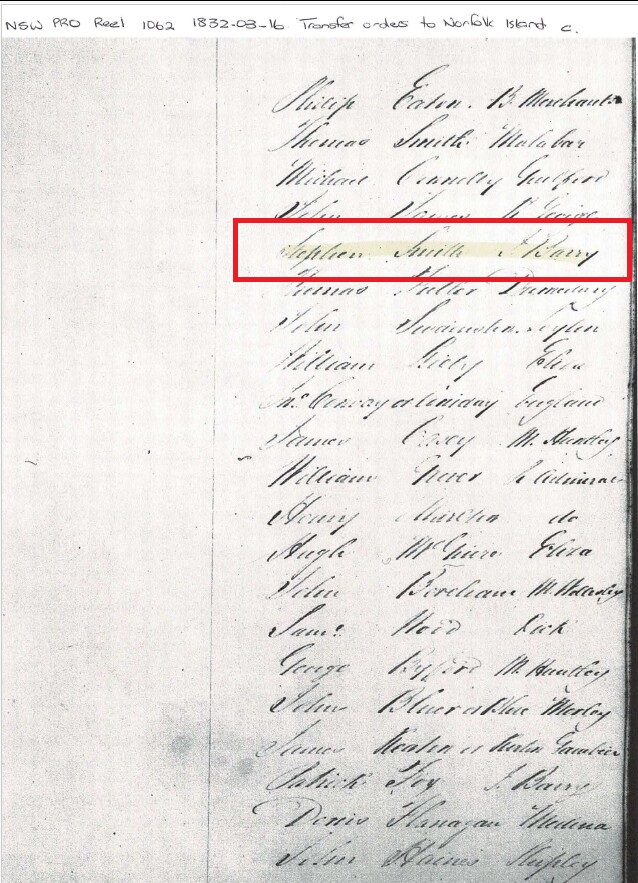 NSW PRO Reel 1062 1832-03-16 Transfer orders to Norfolk Island c.
Philip Eaton B. Merchant
Thomas Smith Malabar
Michael Connelly Guilford
John James R George
Stephen Smith J Barry
Thomas Fuller Dromedary
John Swainston
William Eliza
Jno. Conway or England
James Casey M. Huntley
William Greer R Admiral
Henry do
Hugh McGuire Eliza
John Boreham M. Wellesley
Saml. Hood
George Byford M. Huntley
John Blair or Blue Morley
James Keaton or Gambier
Patrick Foy J. Barry
Denis Flanagan Medina
John Haines Shipley